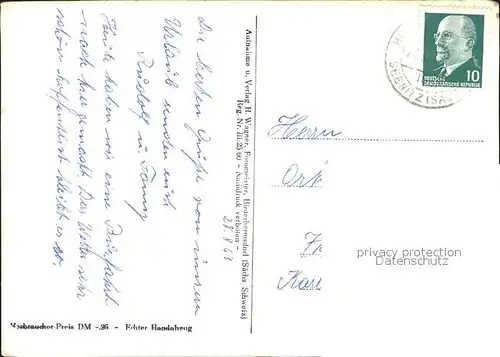 Die besten Grüße von unserem
Urlaub senden euch
Rudolf u. Fanny
Heute haben wir eine Busfahrt
nach hier gemacht. Das Wetter war
schön hoffentlich bleibt es so.
28.8.63
Verbraucher-Preis DM -.25 - Echter Handabzug
Aufnahme u. Verlag H. Wagner, Fotomeister, Hinterhermsdorf (Sächs. Schweiz)
Reg. Nr. III 25 60 - Nachdruck verboten -
SEBNITZ (SA
DEUTSCHE
DEMOKRATISCHE REPUBLIK
10
Herrn
Ort
privacy protection
watermark